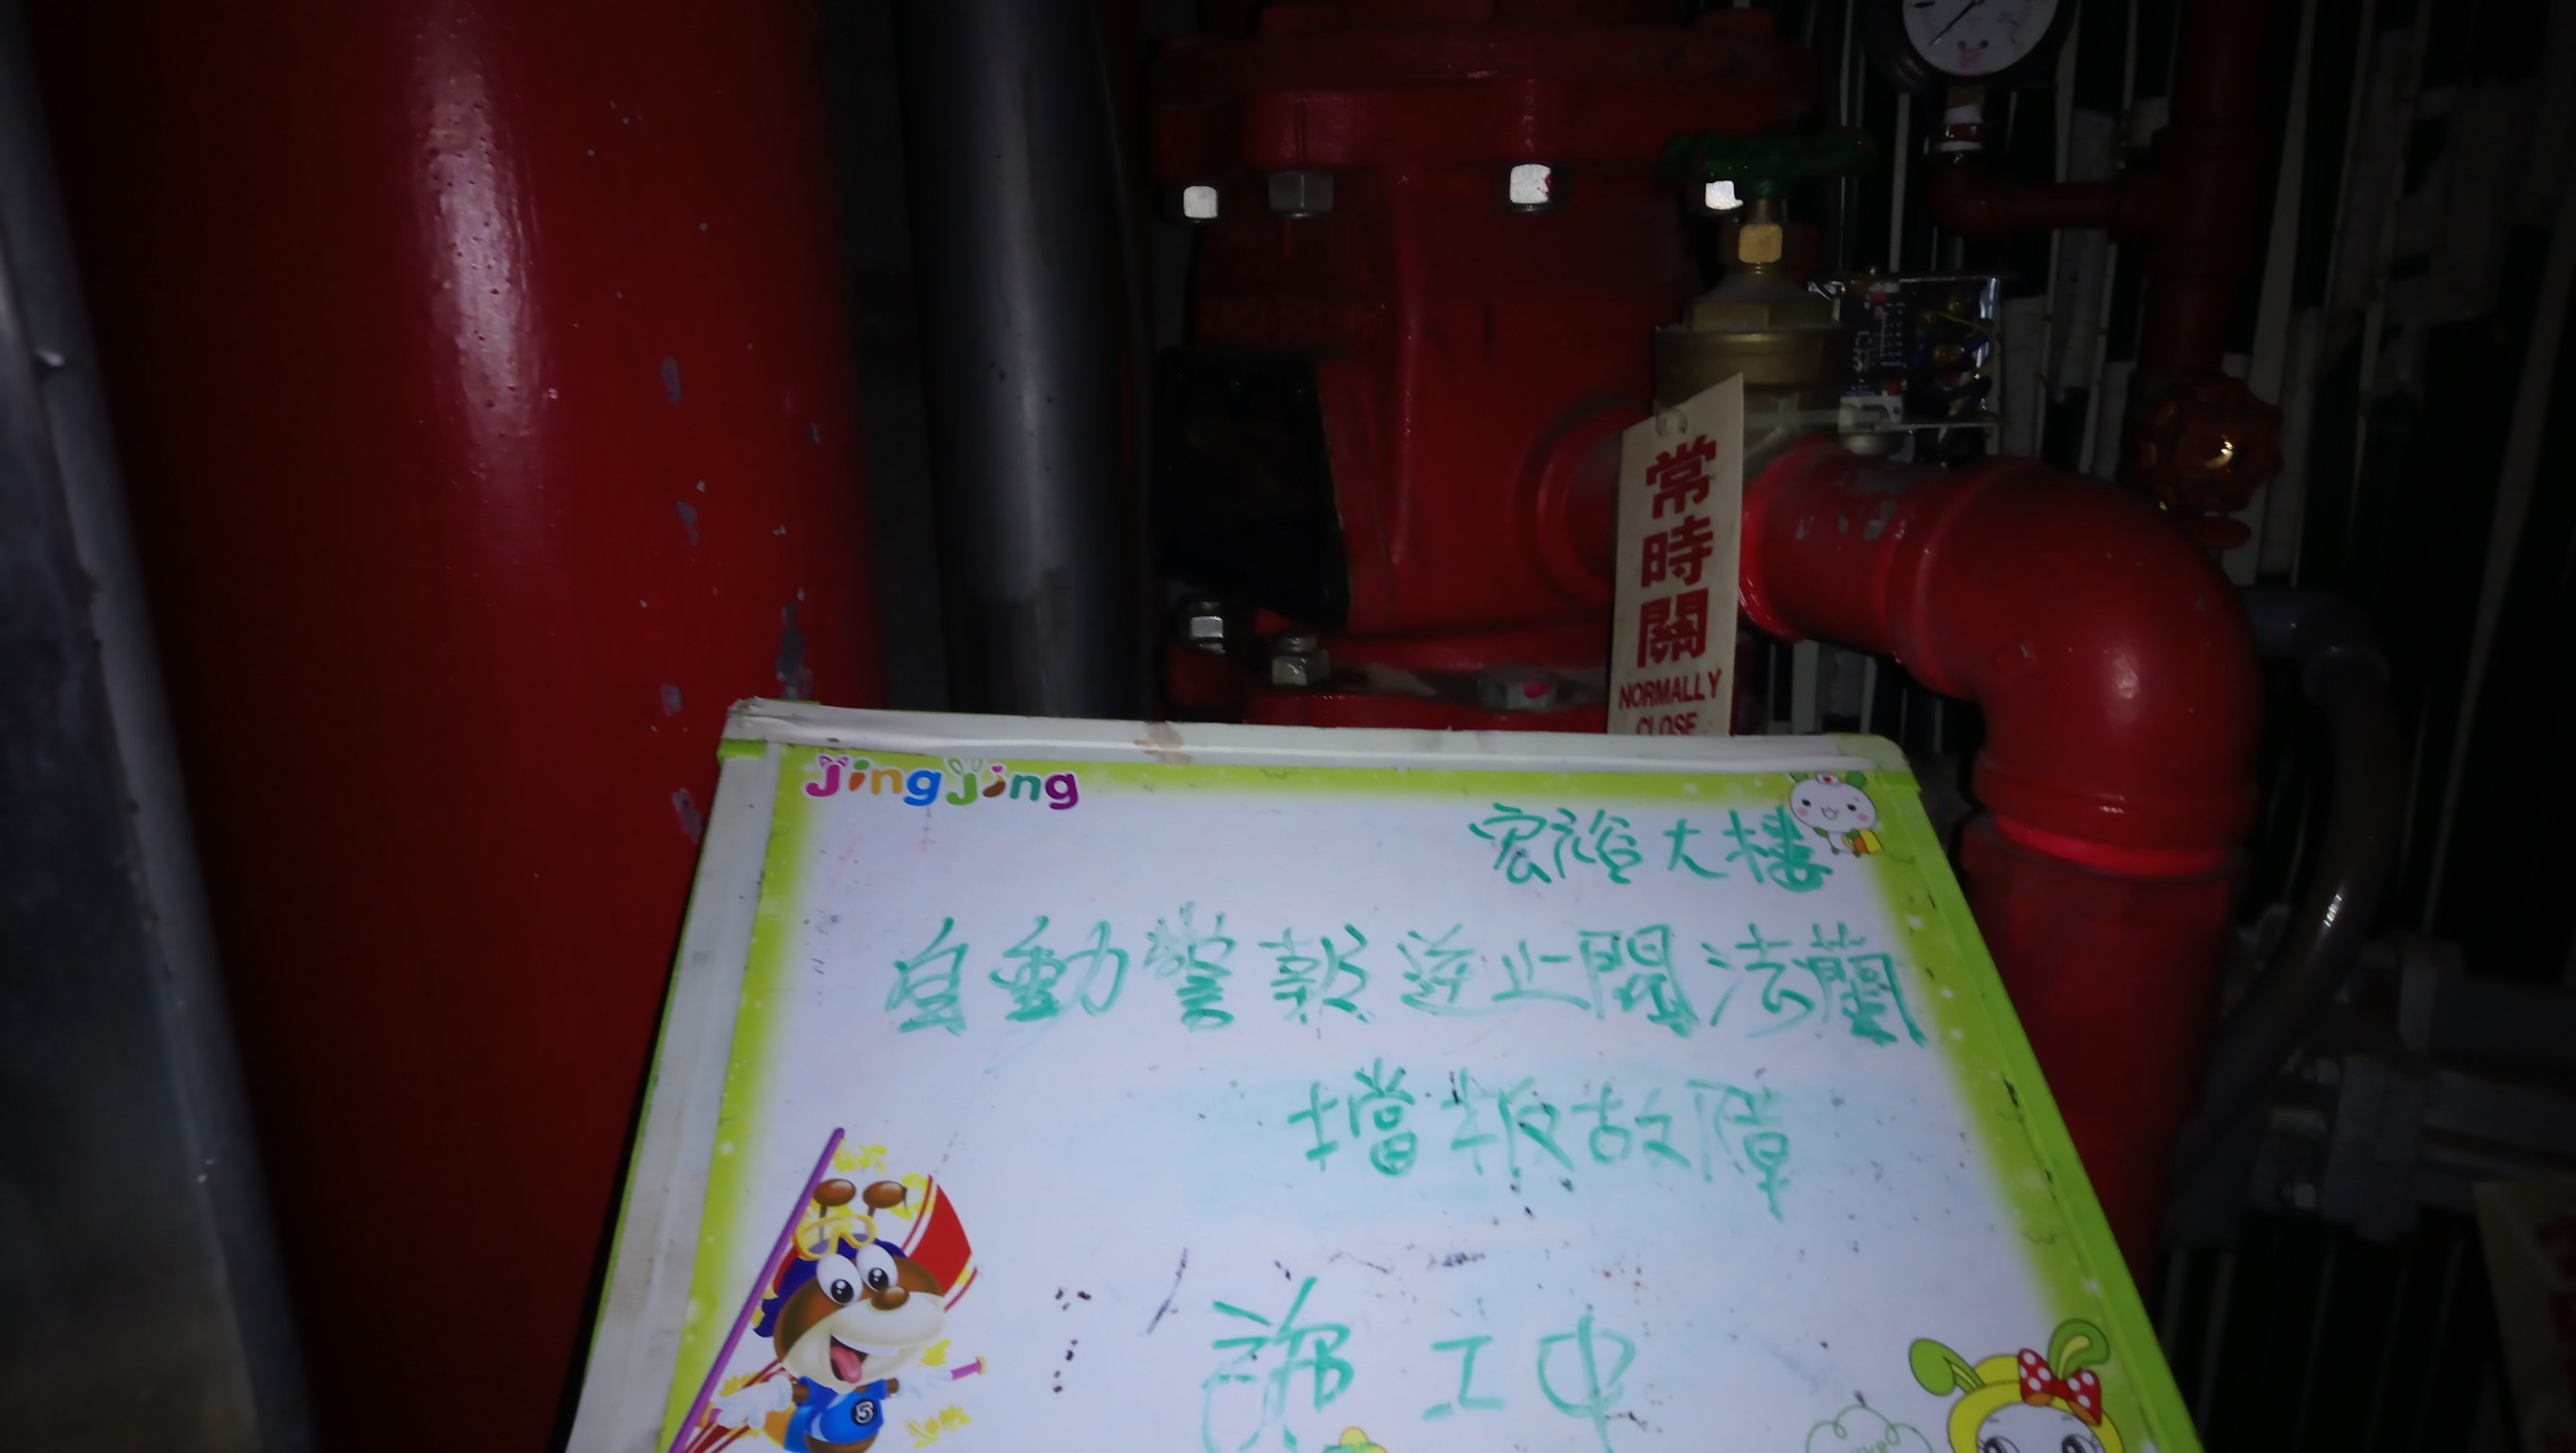 常時關
NORMALLY
CLOSE
jingjing
宏裕大樓
自動警報逆止閥法蘭
擋板故障
施工中
5